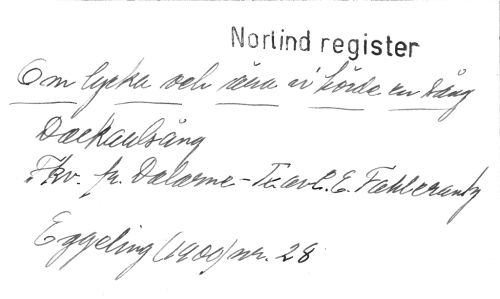 Nortind register
Om lycka och ära vi hörde en sång
Dackaulsång
Fkv. fr. Dalarne - Tr. av C. E. Fahlcrantz
Eggeling (1900) nr. 28